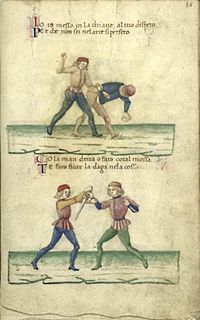 Io to messo in la chiave al tuo dispeto
Per che non sei nel arte si perfeto.
Co la man drita o fato cotal mossa
Te faro ficar la daga nela cossa